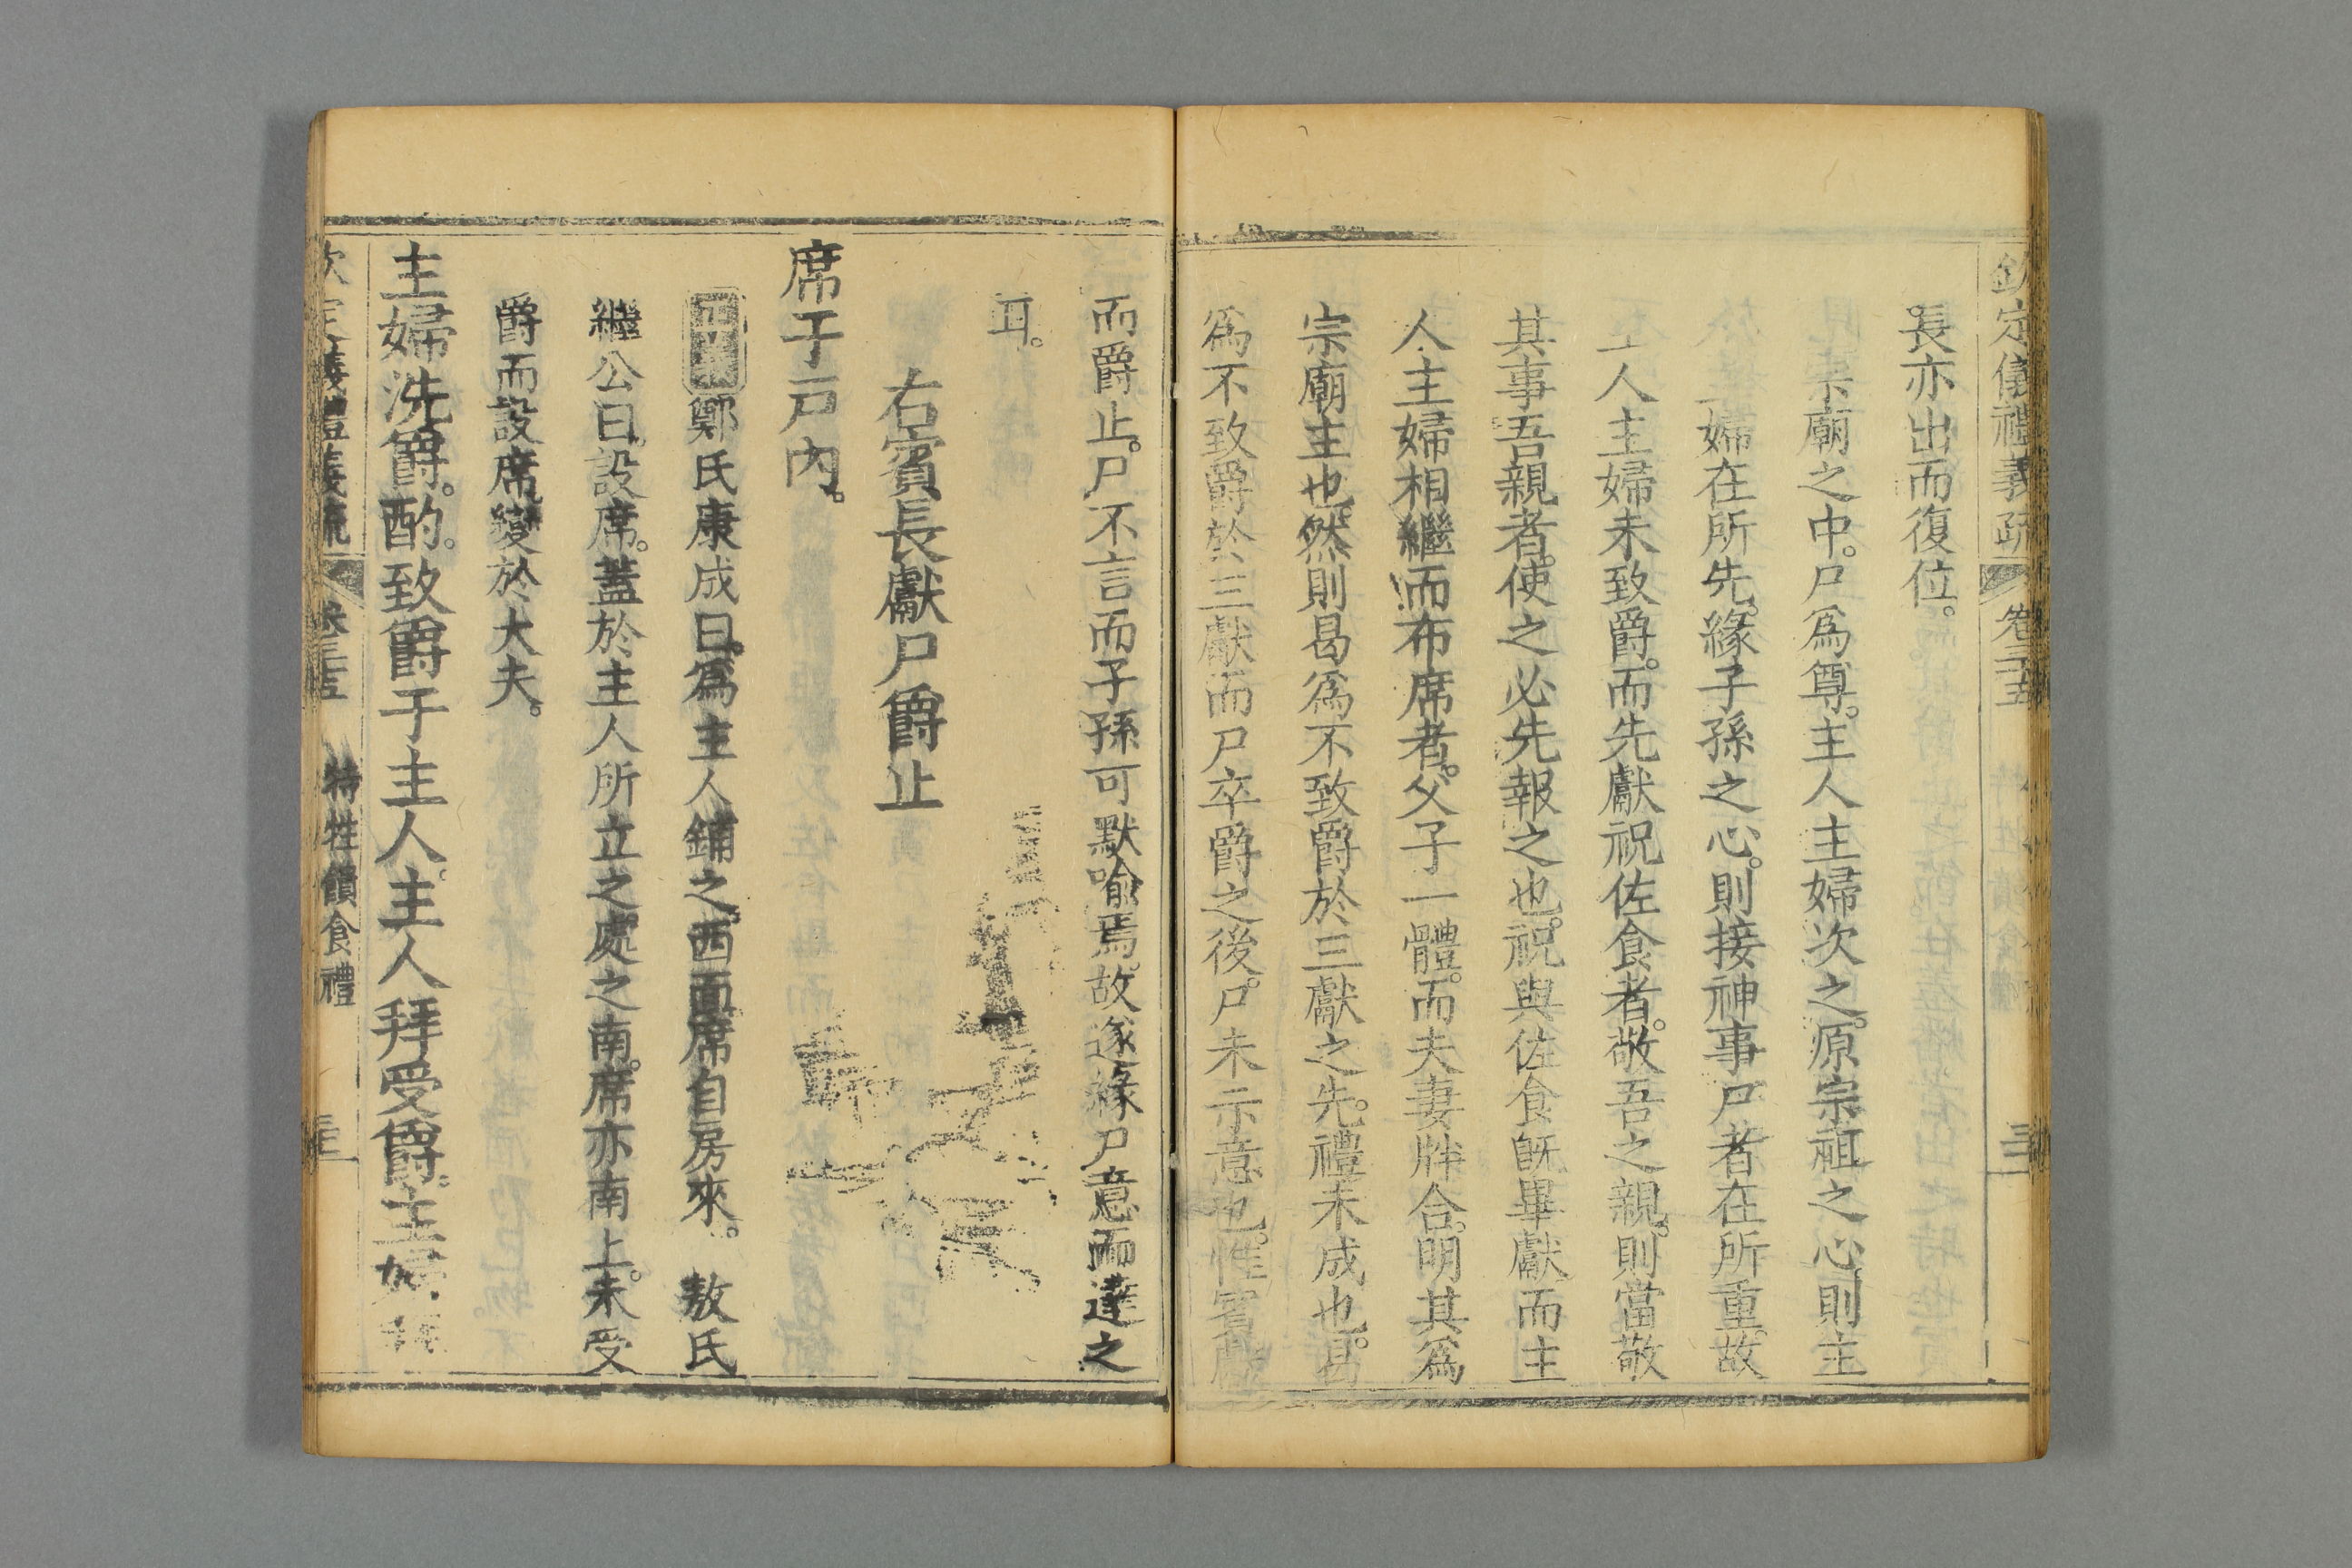 欽定儀禮義疏 卷三十五
長亦出而復位。
宗廟之中。尸爲尊。主人主婦次之。原宗祖之心。則主
婦在所先。緣子孫之心。則接神事尸者在所重。故
人主婦未致爵。而先獻祝佐食者。敬吾之親。則當敬
其事吾親者。使之必先報之也。祝與佐食旣畢獻而主
人主婦相繼而布席者。父子一體。而夫妻牉合。明其爲
宗廟主也。然則曷爲不致爵於三獻之先。禮未成也。曷
爲不致爵於三獻而尸卒爵之後。尸未示意也。惟賓獻
而爵止。尸不言而子孫可默喻焉。故遂緣尸意而達之
耳。
右賓長獻尸爵止
席于戶內。
鄭氏康成曰。爲主人鋪之。西面。席自房來。 敖氏
繼公曰。設席。蓋於主人所立之處之南。席亦南上。未受
爵而設席。變於大夫。
主婦洗爵。酌。致爵于主人。主人拜受爵。主婦拜
欽定儀禮義疏 卷三十五 特牲饋食禮